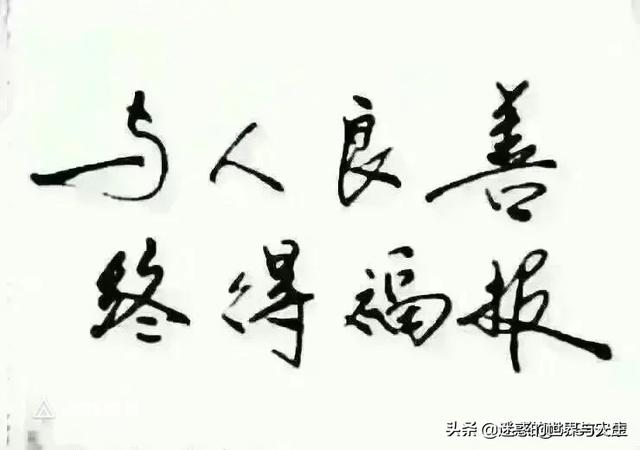 与人良善
终得福报
头条 @迷惑的世界与人生